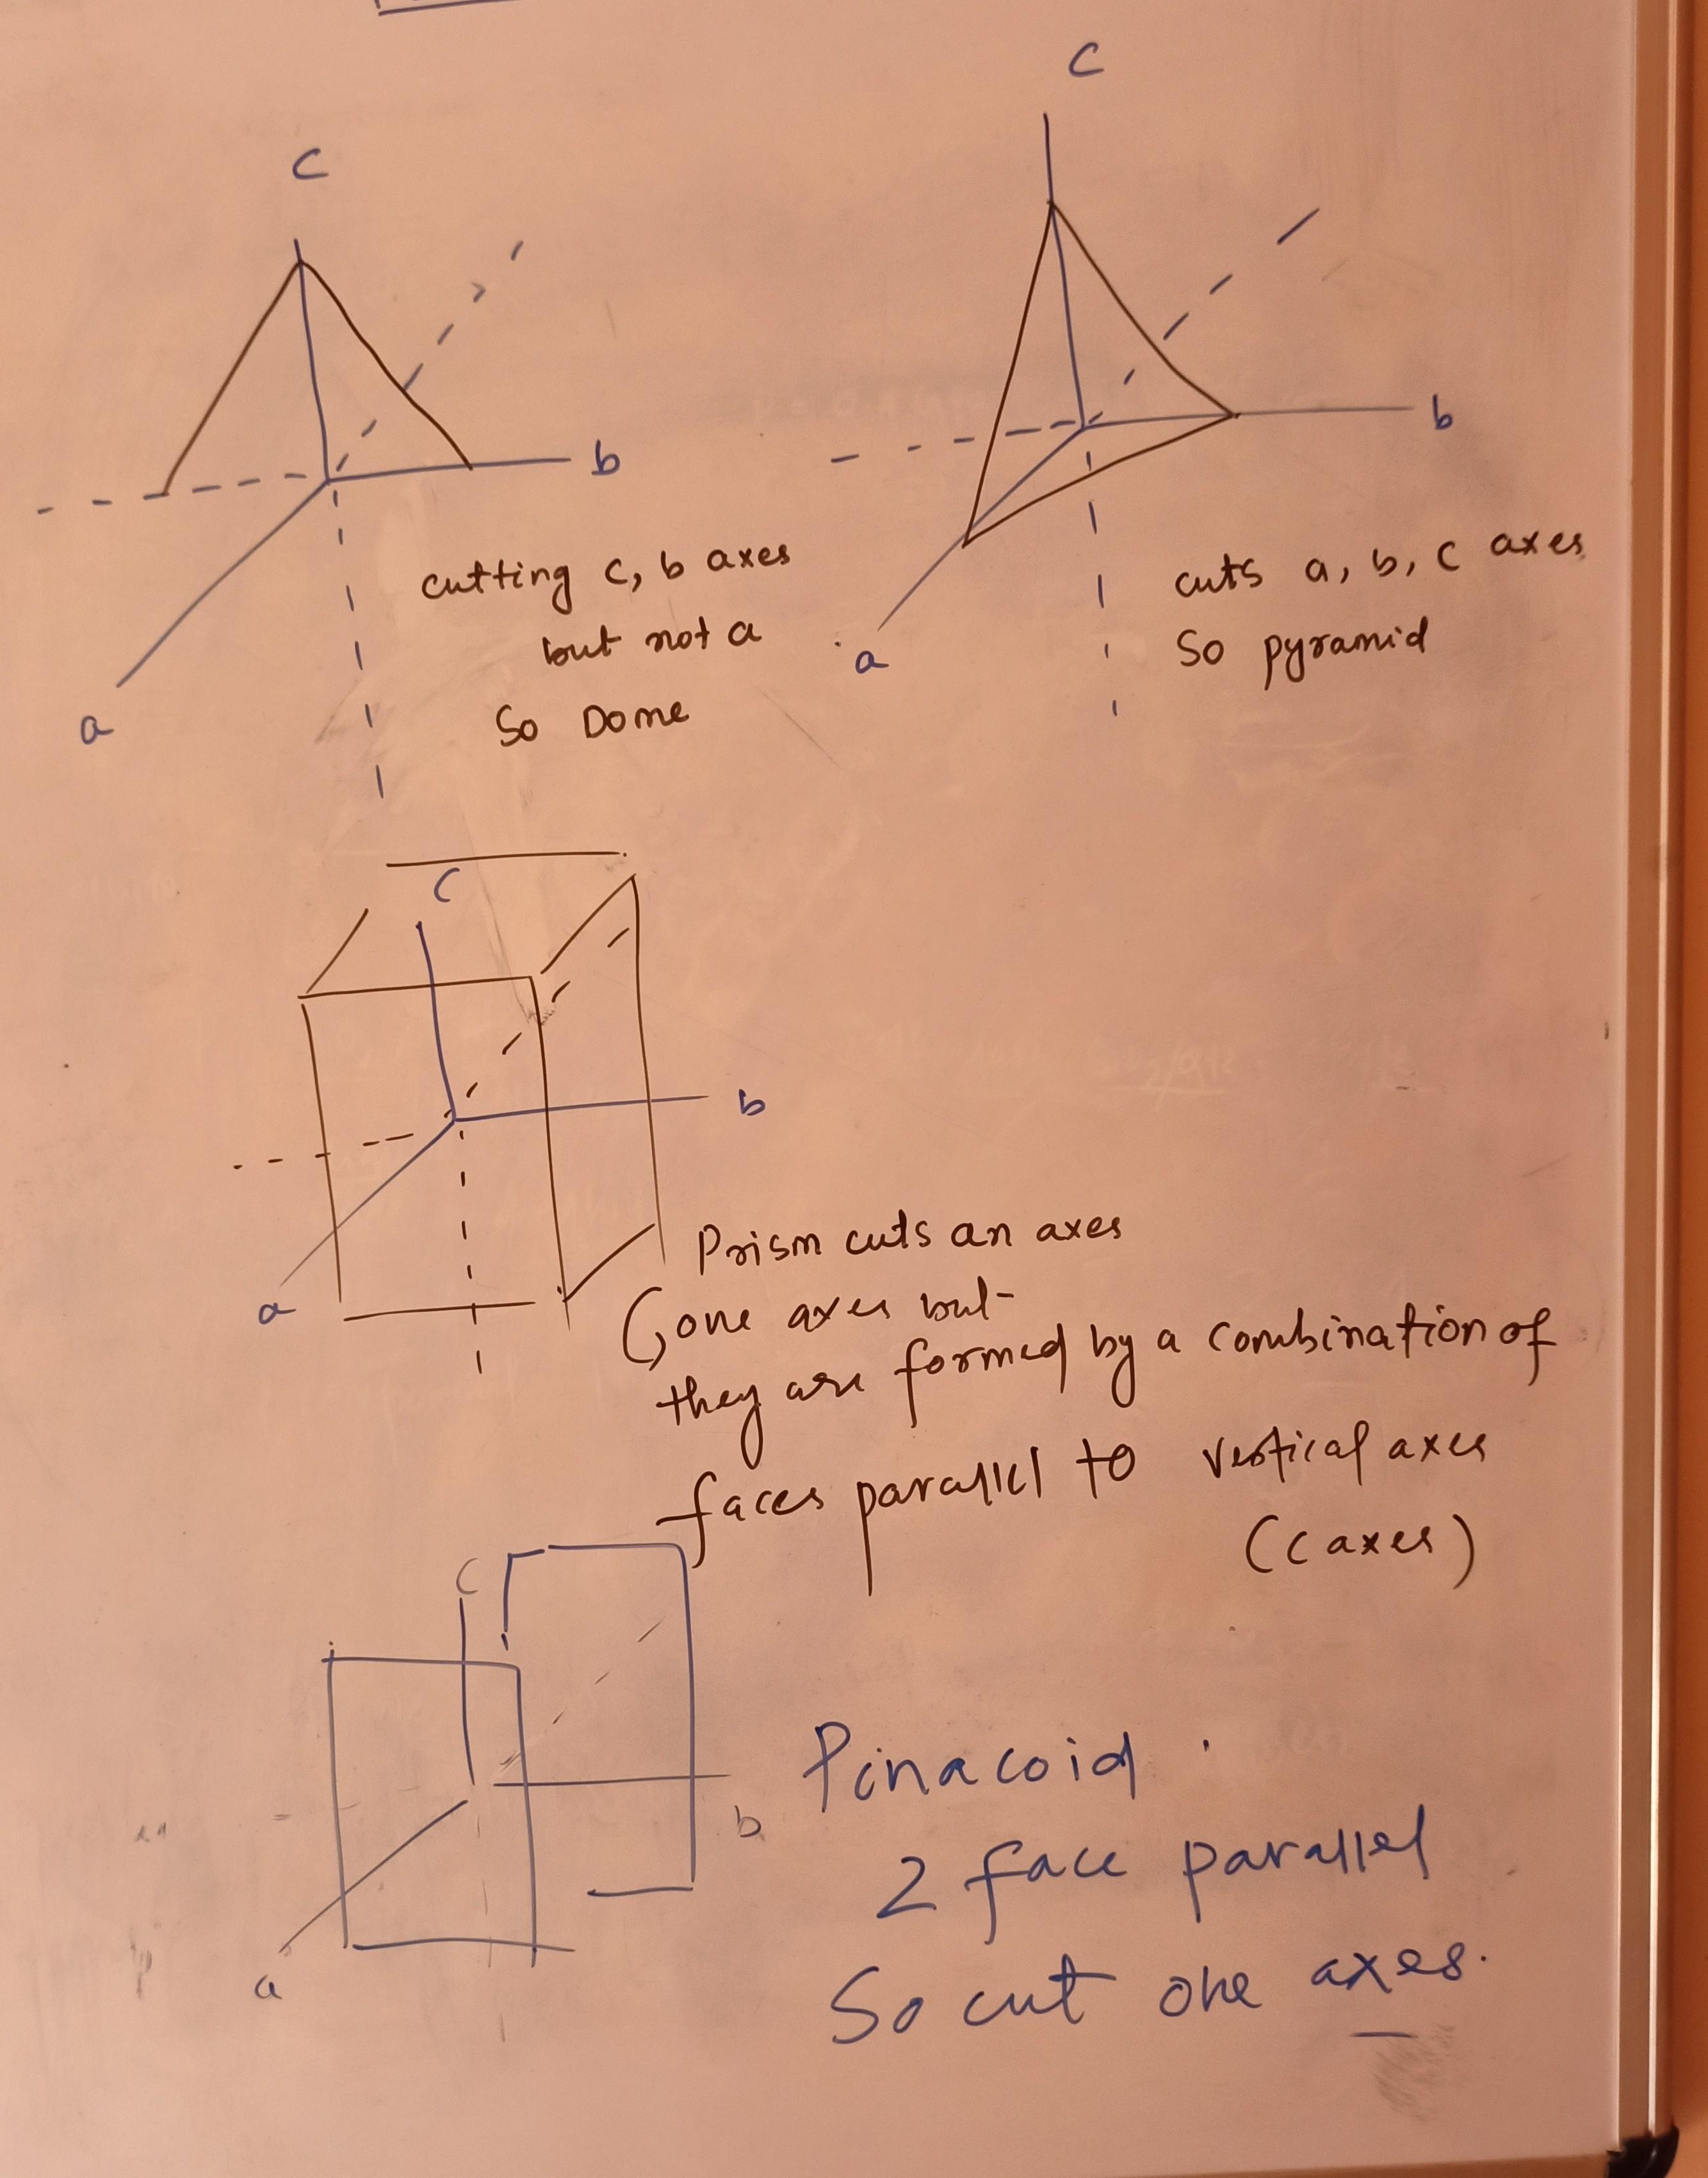 C
C
b
cutting c, b axes
but not a
So Dome
a
b
cuts a, b, c axes
So pyramid
a
C
b
a
Prism cuts an axes
one axes but
they are formed by a combination of
faces parallel to vertical axes
(c axes)
C
b
a
Pinacoid
2 face parallel
So cut one axes.